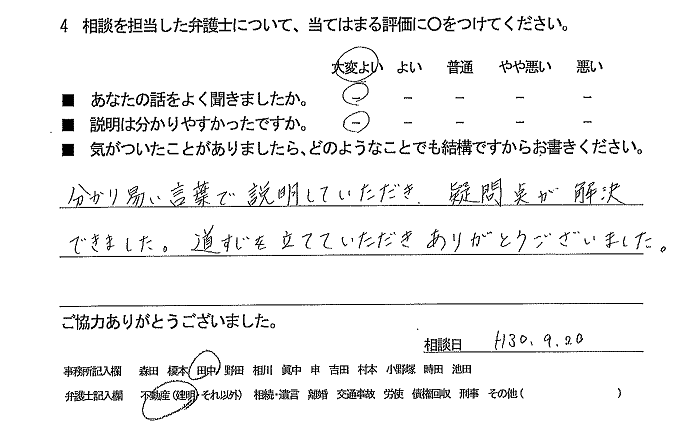 4 相談を担当した弁護士について、当てはまる評価に〇をつけてください。
大変よい よい 普通 やや悪い 悪い
■ あなたの話をよく聞きましたか。 － － － － －
■ 説明は分かりやすかったですか。 － － － － －
■ 気がついたことがありましたら、どのようなことでも結構ですからお書きください。
分かり易い言葉で説明していただき、疑問点が解決
できました。道すじを立てていただきありがとうございました。
ご協力ありがとうございました。
相談日 H30.9.20
事務所記入欄 森田 榎本 田中 野田 相川 眞中 申 吉田 村本 小野塚 時田 池田
弁護士記入欄 不動産（建明・それ以外） 相続・遺言 離婚 交通事故 労使 債権回収 刑事 その他（ ）